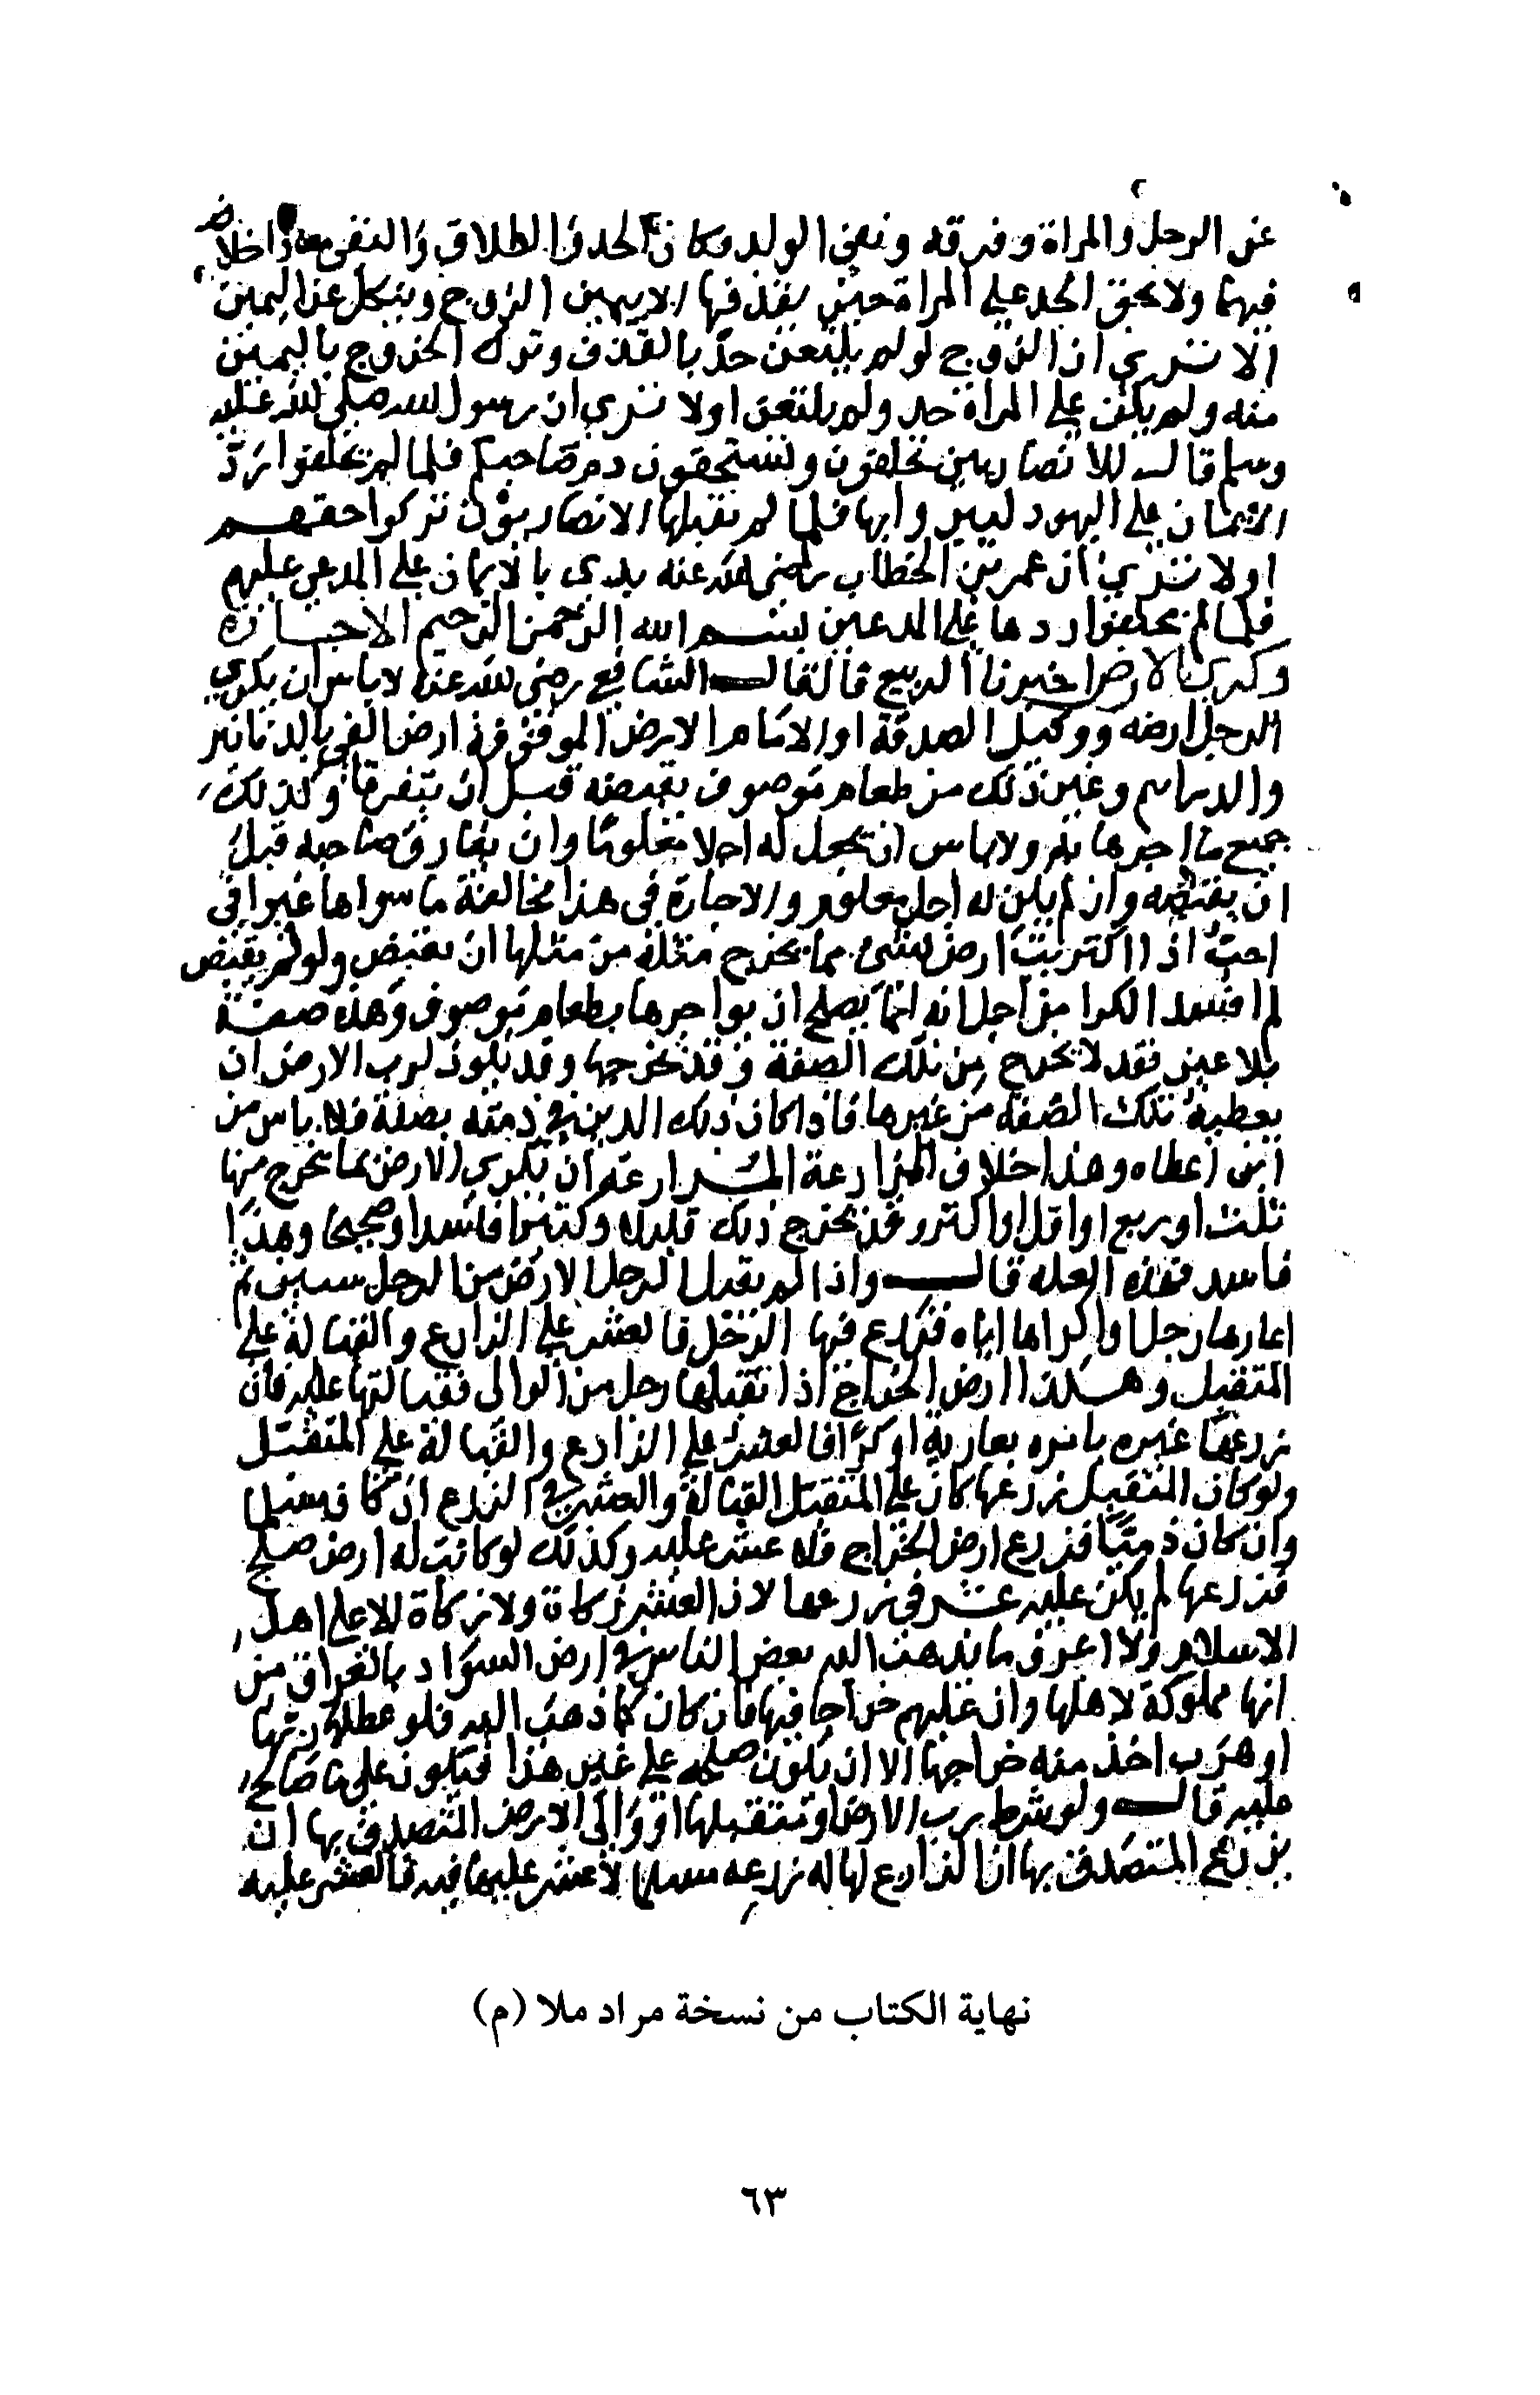 عن الرجل والمراة وفرقه ونفى الولد وكان الحد والطلاق والنفى معا داخلا
فيها ولا يحق الحد على المراة حين يقذفها الا بيمين الزوج وينكل عن اليمين
الا ترى ان الزوج لو لم يلتعن حد بالقذف وترك الخروج باليمين
منه ولم يكن على المراة حد ولم يلتعن اولا ترى ان رسول الله صلى الله عليه
وسلم قال للانصاريين تحلفون وتستحقون دم صاحبكم فلما لم يحلفوا رد
الايمان على اليهود ليبروا بها فلما لم تقبلها الانصاريون تركوا حقهم
اولا ترى ان عمر بن الخطاب رضى الله عنه بدى بالايمان على المدعى عليهم
فلما لم يحلفوا ردها على المدعين بسم الله الرحمن الرحيم الاجارة
وكرى الارض اخبرنا الربيع قال قال الشافعى رضى الله عنه لا باس ان يكرى
الرجل ارضه ووكيل الصدقة او الامام الارض الموقوفة ارض الفى بالدنانير
والدراهم وغير ذلك من طعام موصوف يقبضه قبل ان يتفرقا وكذلك
جميع ما اجرها به ولا باس ان يجعل له اجلا معلوما وان يفارق صاحبه قبل
ان يقبضه وان لم يكن له اجل معلوم والاجارة فى هذا مخالفة ما سواها غير انى
احب اذا اكتريت ارض بشىء مما يخرج مثله من مثلها ان يقبض ولو لم يقبض
لم افسد الكرا من اجل انه انما يصلح ان يواجرها بطعام موصوف وهذه صفة
بلا عين فقد لا يخرج من تلك الصفة وقد تخرجها وقد يكون لرب الارض ان
يعطيه تلك الصفة من غيرها فاذا كان ذلك الدين فى ذمته بصفة فلا باس من
اين اعطاه وهذا خلاف المزارعة المزارعة ان تكرى الارض بما يخرج منها
ثلث او ربع او اقل او اكثر وقد يخرج ذلك قليلا وكثيرا فاسدا وصحيحا وهذا
فاسد بهذه العله قال واذا لم يقبل الرجل الارض من الرجل سنين ثم
اعارها رجلا او اكراها اياه فزرع فيها الرجل فالعشر على الزارع والقبالة على
المتقبل وهكذا ارض الخراج اذا تقبلها رجل من الوالى فقبالتها عليه فان
زرعها غيره بامره بعارية او كرا فالعشر على الزارع والقبالة على المتقبل
ولو كان المتقبل زرعها كان على المتقبل القبالة والعشر فى الزرع ان كان مسلما
وان كان ذميا فزرع ارض الخراج فلا عشر عليه وكذلك لو كانت له ارض صلح
فزرعها لم يكن عليه عشر فى زرعها لان العشر زكاة ولا زكاة الا على اهل
الاسلام ولا اعرف ما يذهب اليه بعض الناس فى ارض السواد بالعراق من
انها مملوكة لاهلها وان عليهم خراجا فيها فان كان كما ذهب اليه فلو عطلها ربها
او هرب اخذ منه خراجها الا ان يكون صلحه على غير هذا فيكون على ما صالح
عليه قال ولو شرط رب الارض او متقبلها او والى الارض المتصدق بها ان
من زرع المتصدق بها ان الزارع لها له زرعه مسلما لا عشر عليها فيه فالعشر عليه
نهاية الكتاب من نسخة مراد ملا (م)
٦٣